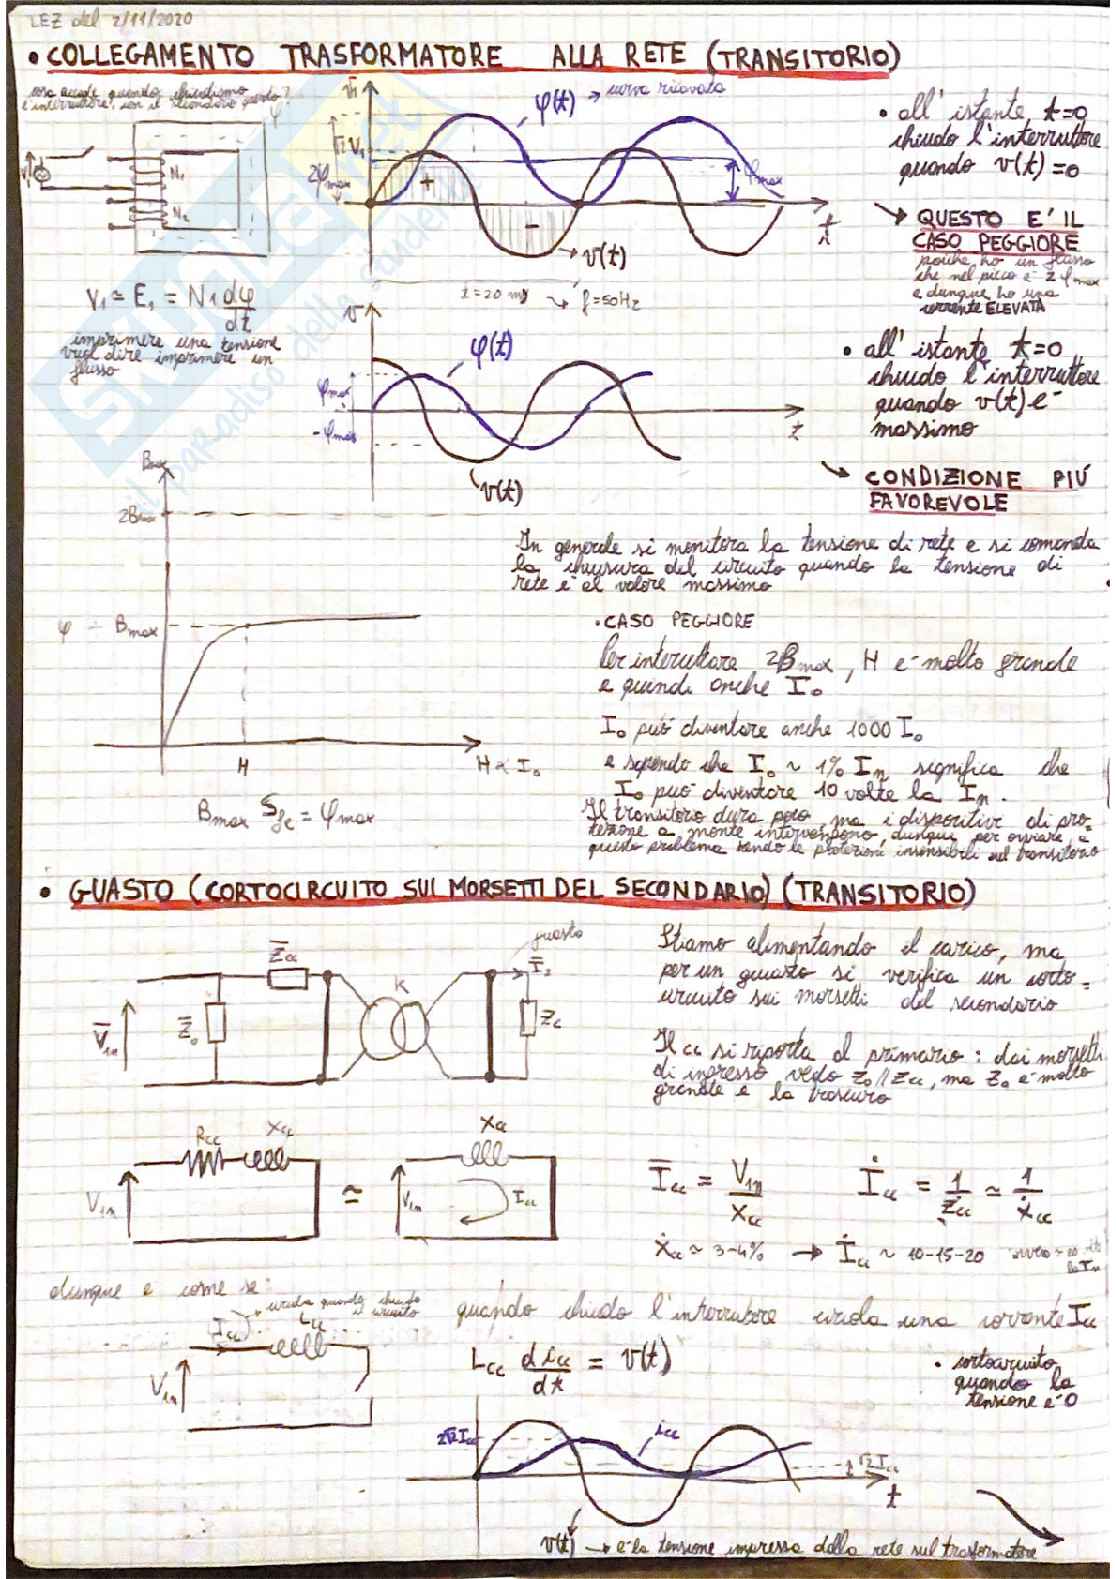 LEZ del 2/11/2020
• COLLEGAMENTO TRASFORMATORE ALLA RETE (TRANSITORIO)
cosa accade quando chiudiamo
l'interruttore, con il secondario aperto?
φ
V1
N1
N2
V1 ≃ E1 = N1 dφ/dt
imprimere una tensione
vuol dire imprimere un
flusso
V1
√2 V1
2φmax
φ(t) → curva ricavata
+
-
φmax
t
v(t)
t=20 ms → f=50Hz
• all'istante t=0
chiudo l'interruttore
quando v(t)=0
→ QUESTO E' IL
CASO PEGGIORE
poiché ho un flusso
che nel picco è 2φmax
e dunque ho una
corrente ELEVATA
v
φ(t)
φmax
-φmax
t
v(t)
• all'istante t=0
chiudo l'interruttore
quando v(t) è
massimo
→ CONDIZIONE PIÚ
FAVOREVOLE
Bmax
2Bmax
φ
Bmax
H
H ∝ I0
Bmax Sfe = φmax
In generale si monitora la tensione di rete e si comanda
la chiusura del circuito quando la tensione di
rete è al valore massimo
• CASO PEGGIORE
Per intercettare 2Bmax, H è molto grande
e quindi anche I0
I0 può diventare anche 1000 I0
e sapendo che I0 ~ 1% In significa che
I0 può diventare 10 volte la In.
Il transitorio dura poco, ma i dispositivi di pro=
tezione a monte intervengono, dunque per ovviare a
questo problema rendo le protezioni insensibili al transitorio
• GUASTO (CORTOCIRCUITO SUI MORSETTI DEL SECONDARIO) (TRANSITORIO)
V1n
Z0
Zcc
K
guasto
I2
Zc
Stiamo alimentando il carico, ma
per un guasto si verifica un corto=
circuito sui morsetti del secondario
Il cc si riporta al primario: dai morsetti
di ingresso vedo Z0 // Zcc, ma Z0 è molto
grande e la trascuro
Rcc
Xcc
V1n
≃
Xcc
V1n
Icc
Icc = V1n/Xcc
İcc = 1/żcc ≃ 1/ẋcc
ẋcc ≃ 3-4% → İcc ~ 10-15-20
la In
dunque è come se:
circola quando chiudo
il circuito
Icc
Lcc
V1n
quando chiudo l'interruttore circola una corrente Icc
Lcc dicc/dt = v(t)
• cortocircuito
quando la
tensione è 0
2√2 Icc
icc
√2 Icc
t
v(t) → è la tensione impressa dalla rete sul trasformatore